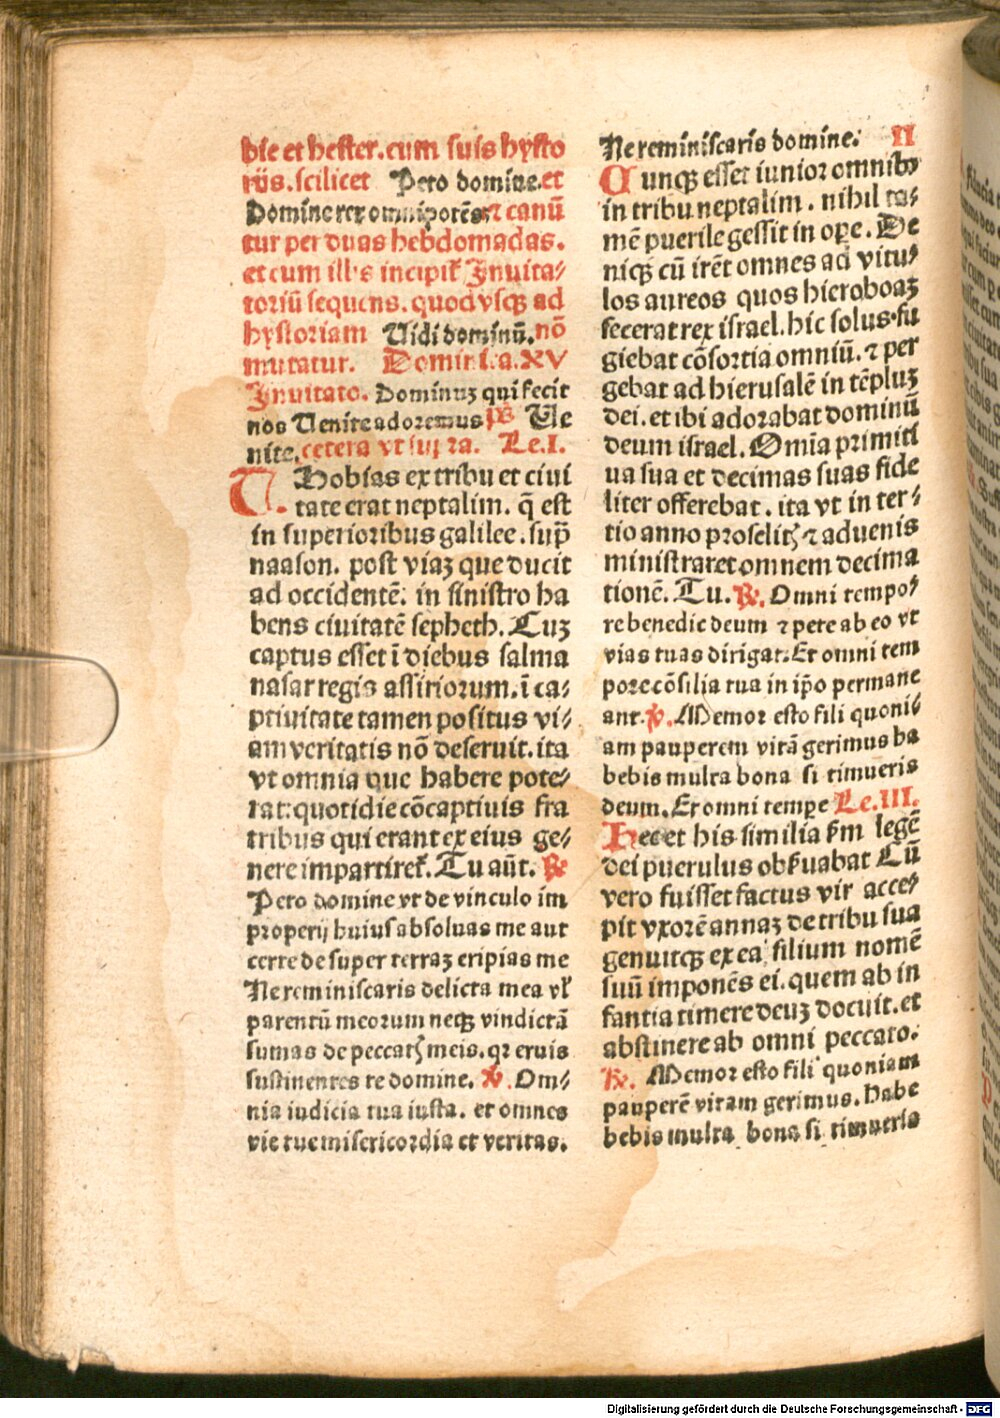 bie et hester. cum suis hysto
riis. scilicet Peto domine. et
Domine rex omnipotēs ⁊ canū
tur per duas hebdomadas.
et cum illis incipit᷑ Inuita⸗
toriū sequens. quod vsqꝫ ad
hystoriam Uidi dominū. nō
mutatur. Dominica. XV
Inuitato. Dominuꝫ qui fecit
nos Uenite adoremus p̄s Ue
nite. cetera vt supra. Le. I.
Thobias ex tribu et ciui
tate erat neptalim. q̄ est
in superioribus galilee. sup̄
naason. post viaꝫ que ducit
ad occidentē. in sinistro ha
bens ciuitatē sepheth. Cuꝫ
captus esset ī diebus salma
nasar regis assiriorum. ī ca⸗
ptiuitate tamen positus vi⸗
am veritatis nō deseruit. ita
vt omnia que habere pote⸗
rat: quotidie cōcaptiuis fra
tribus qui erant ex eius ge⸗
nere impartiret᷑. Tu aūt. ℟
Peto domine vt de vinculo im
properij huius absoluas me aut
certe de super terraꝫ eripias me
Ne reminiscaris delicta mea vl̓
parentū meorum neqꝫ vindictā
sumas de peccatꝭ meis. qr eruis
sustinentes te domine. ℣. Om⸗
nia iudicia tua iusta. et omnes
vie tue misericordia et veritas.
Ne reminiscaris domine. II
Cunqꝫ esset iunior omnibꝰ
in tribu neptalim. nihil ta⸗
mē puerile gessit in oꝑe. De
niqꝫ cū irēt omnes ad vitu⸗
los aureos quos hieroboaꝫ
fecerat rex israel. hic solus fu
giebat cōsortia omniū. ⁊ per
gebat ad hierusalē in tēpluꝫ
dei. et ibi adorabat dominū
deum israel. Omīa primiti
ua sua et decimas suas fide
liter offerebat. ita vt in ter⸗
tio anno proselitꝭ ⁊ aduenis
ministraret omnem decima
tionē. Tu. ℟. Omni tempo⸗
re benedic deum ⁊ pete ab eo vt
vias tuas dirigat. Et omni tem
pore cōsilia tua in ip̄o permane
ant. ℣. Memor esto fili quoni⸗
am pauperem vitā gerimus ha
bebis multa bona si timueris
deum. Et omni tempe Le. III.
Hec et his similia ẜm legē
dei puerulus obẜuabat Cū
vero fuisset factus vir acce⸗
pit vxorē annaꝫ de tribu sua
genuitqꝫ ex ea filium nomē
suū imponēs ei. quem ab in
fantia timere deuꝫ docuit. et
abstinere ab omni peccato.
℟. Memor esto fili quoniam
pauperē vitam gerimus. habe
bebis multa bona si timueris
Digitalisierung gefördert durch die Deutsche Forschungsgemeinschaft - DFG